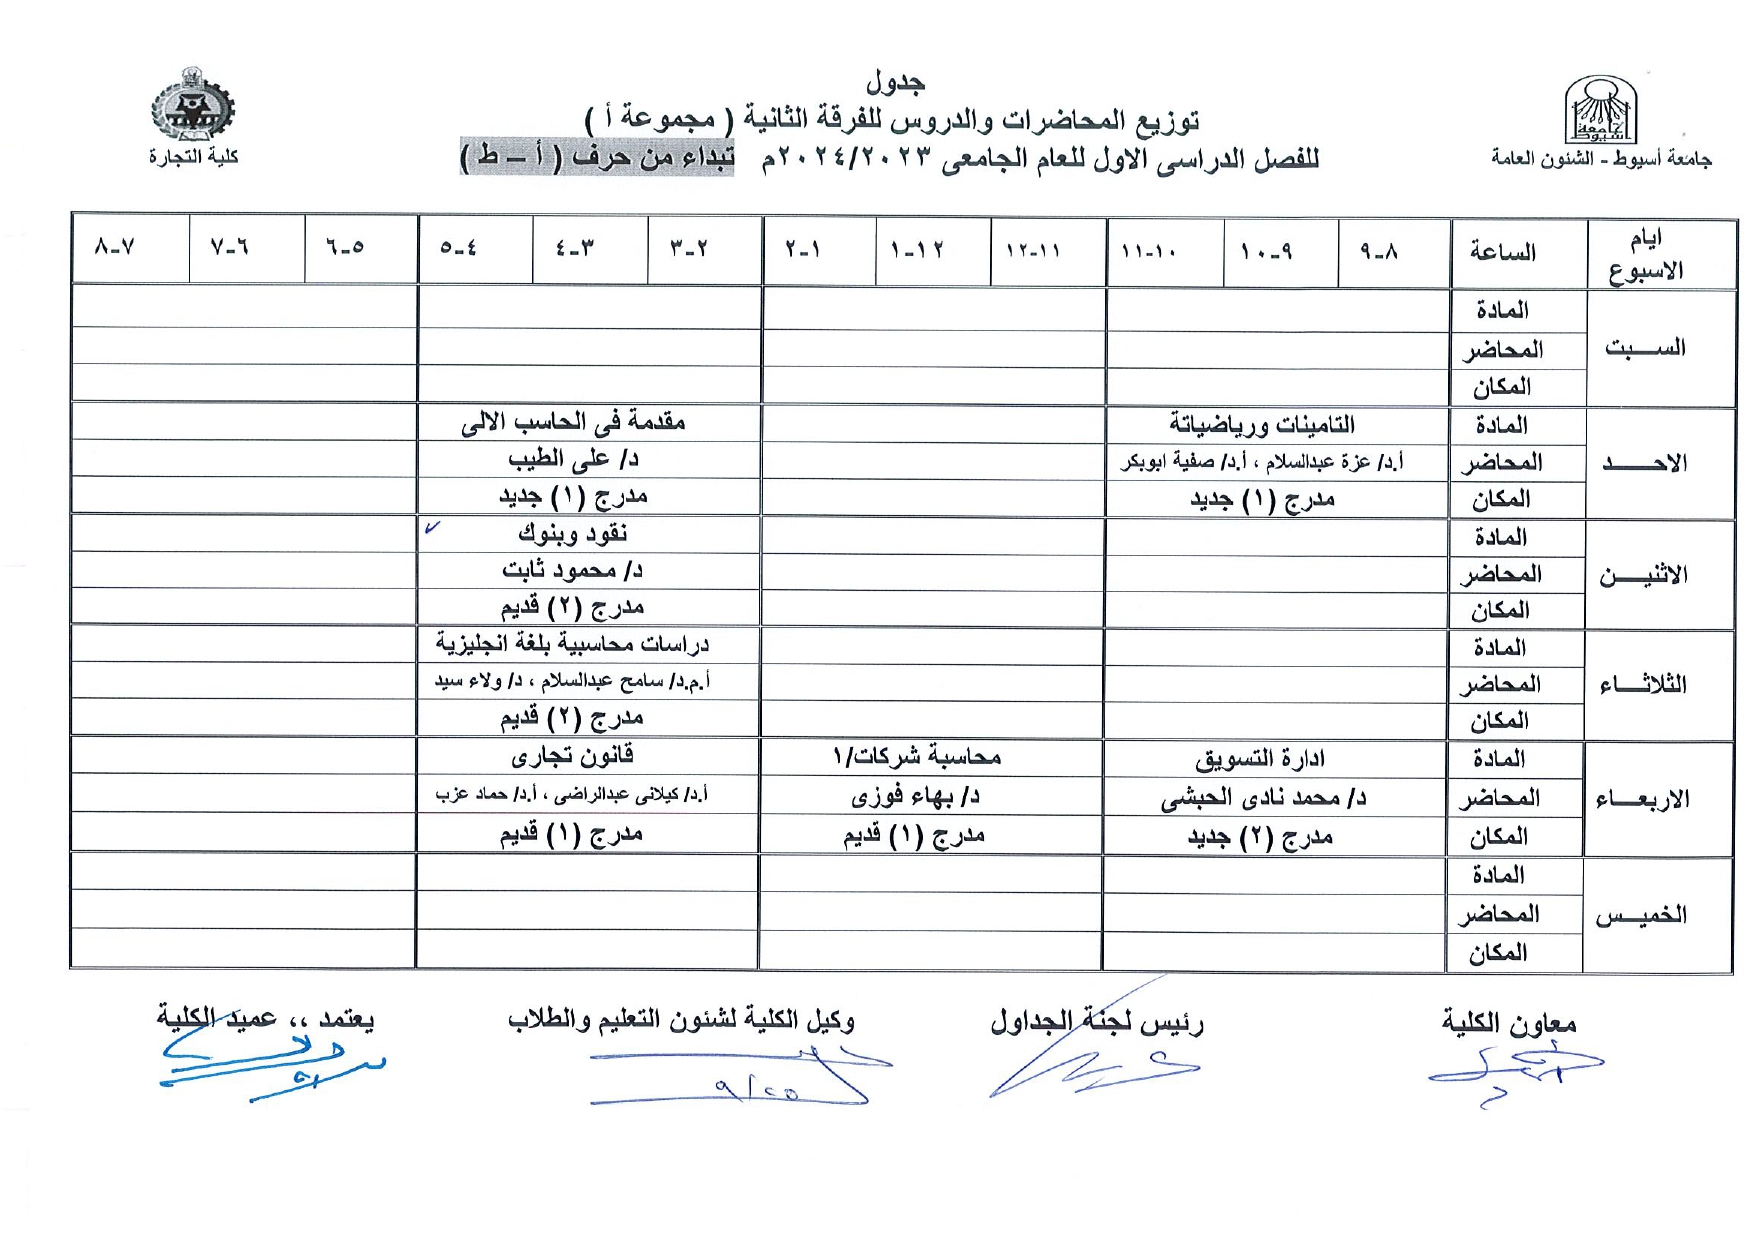 جدول
توزيع المحاضرات والدروس للفرقة الثانية ( مجموعة أ )
للفصل الدراسى الاول للعام الجامعى ٢٠٢٤/٢٠٢٣م تبداء من حرف ( أ – ط )
جامعة أسيوط
جامعة أسيوط - الشئون العامة
كلية التجارة
ايام الاسبوع الساعة ٨-٩ ٩-١٠ ١٠-١١ ١١-١٢ ١٢-١ ١-٢ ٢-٣ ٣-٤ ٤-٥ ٥-٦ ٦-٧ ٧-٨
السبت
المادة
المحاضر
المكان
الاحد
المادة التامينات ورياضياتة مقدمة فى الحاسب الالى
المحاضر أ.د/ عزة عبدالسلام ، أ.د/ صفية ابوبكر د/ على الطيب
المكان مدرج (١) جديد مدرج (١) جديد
الاثنين
المادة نقود وبنوك ✓
المحاضر د/ محمود ثابت
المكان مدرج (٢) قديم
الثلاثاء
المادة دراسات محاسبية بلغة انجليزية
المحاضر أ.م.د/ سامح عبدالسلام ، د/ ولاء سيد
المكان مدرج (٢) قديم
الاربعاء
المادة ادارة التسويق محاسبة شركات/١ قانون تجارى
المحاضر د/ محمد نادى الحبشى د/ بهاء فوزى أ.د/ كيلانى عبدالراضى ، أ.د/ حماد عزب
المكان مدرج (٢) جديد مدرج (١) قديم مدرج (١) قديم
الخميس
المادة
المحاضر
المكان
معاون الكلية رئيس لجنة الجداول وكيل الكلية لشئون التعليم والطلاب يعتمد ،، عميد الكلية
٩/٢٥